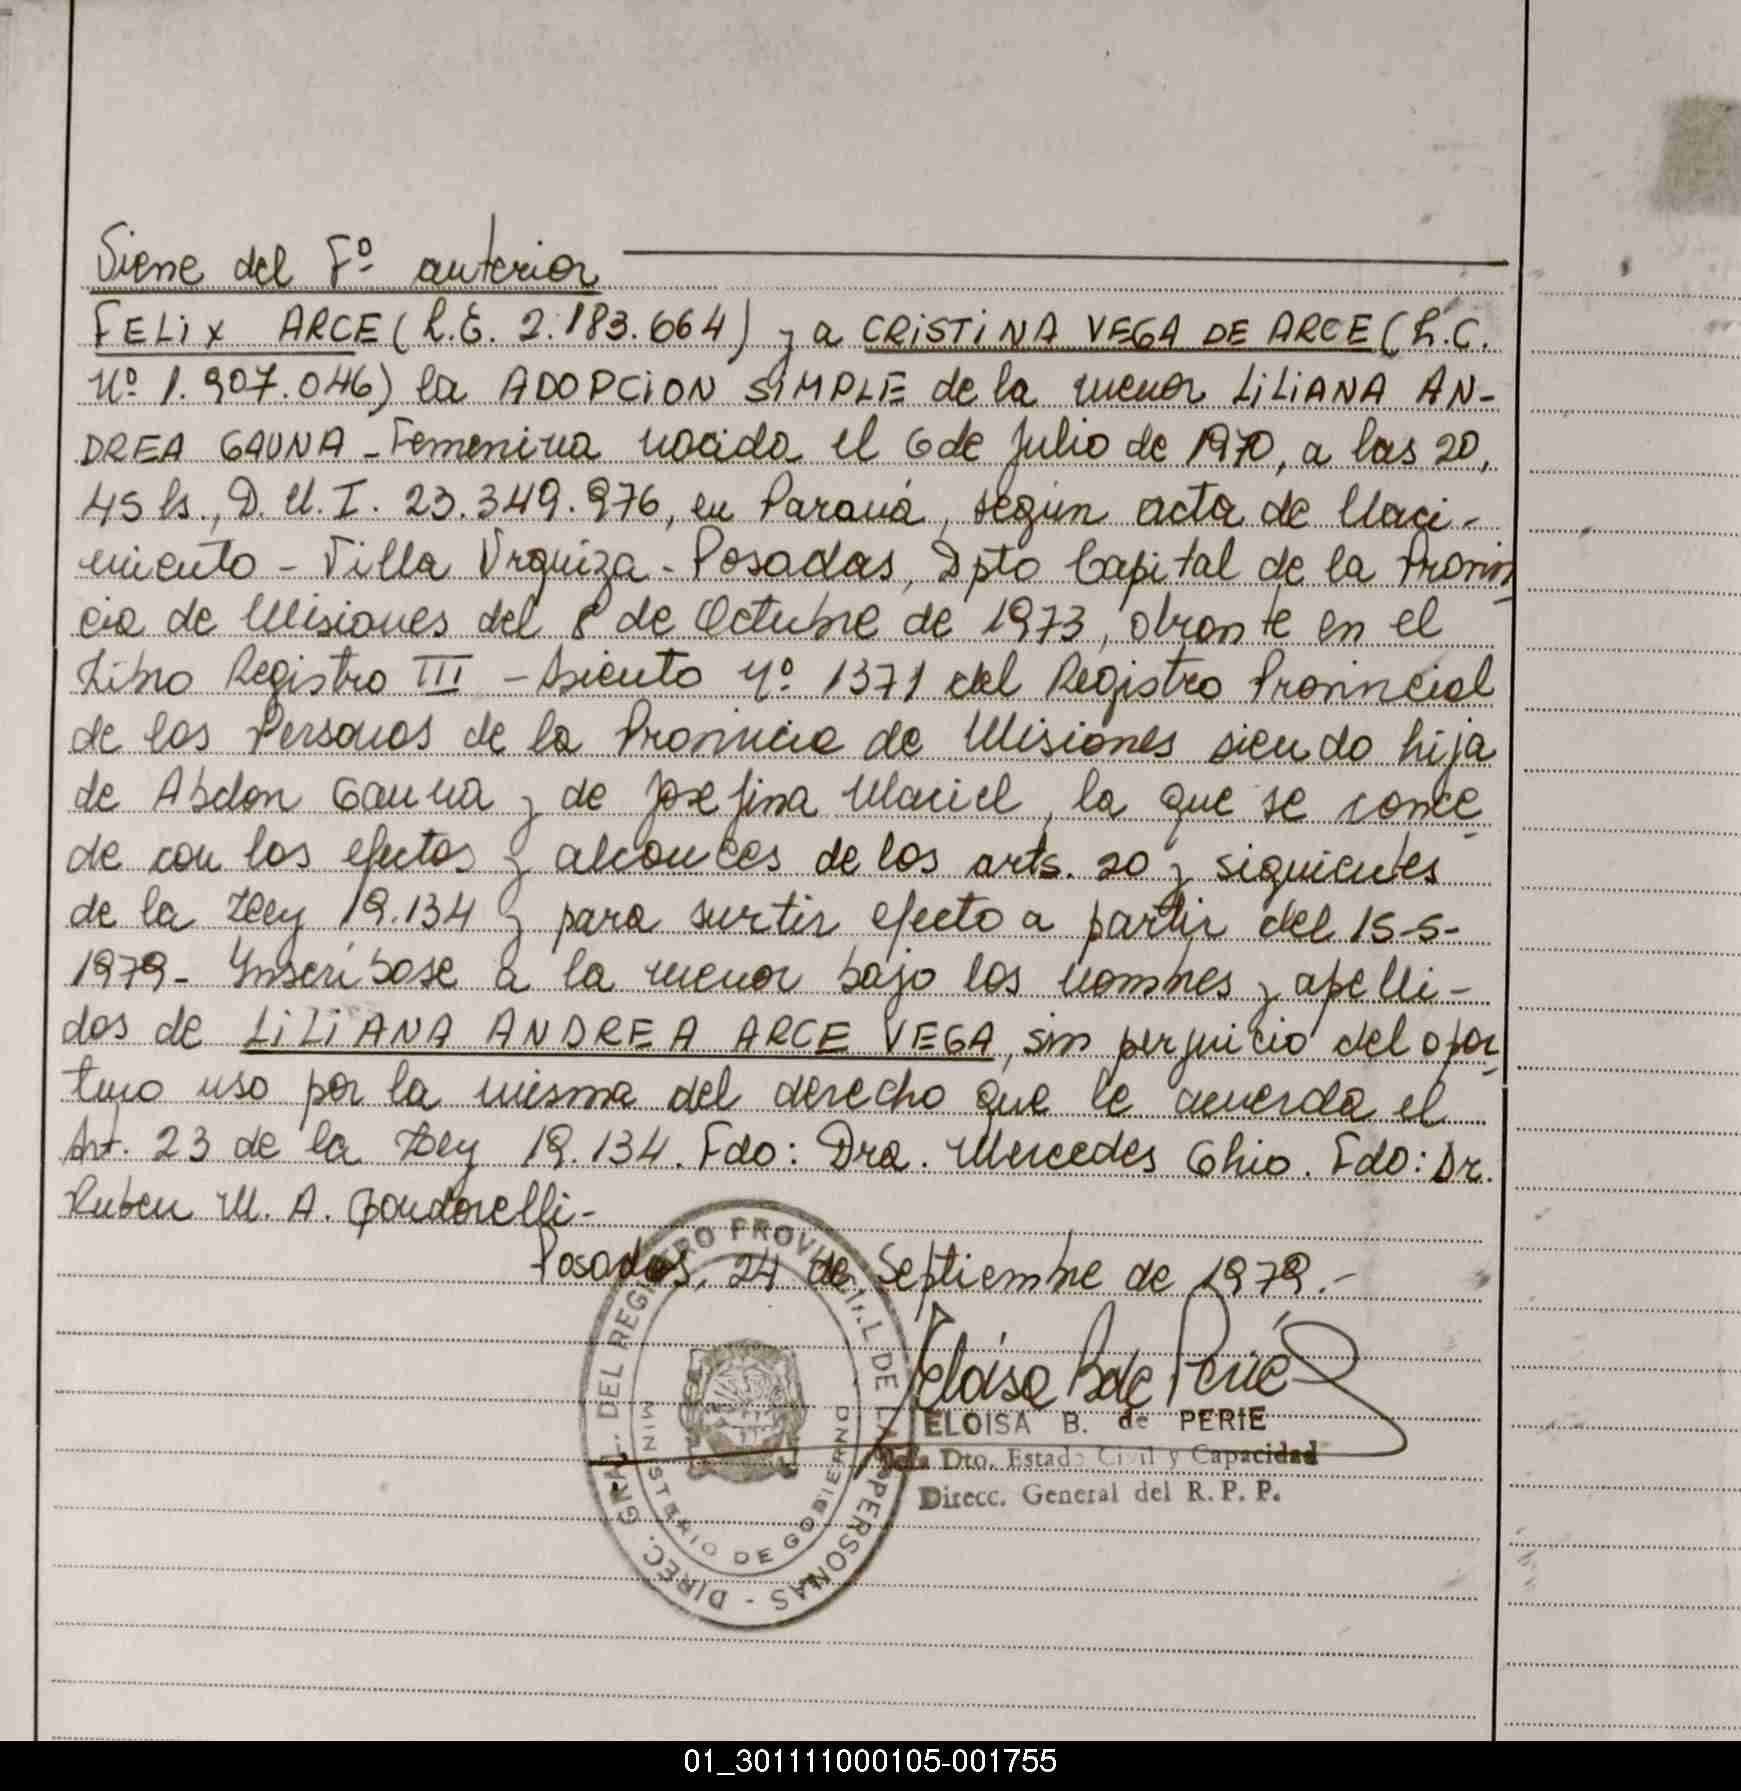 Viene del Fº anterior
FELIX ARCE (L.E. 2.183.664) y a CRISTINA VEGA DE ARCE (L.C.
Nº 1.907.046) la ADOPCION SIMPLE de la menor LILIANA AN-
DREA GAUNA - Femenina nacida el 6 de Julio de 1970, a las 20,
45 hs., D.N.I. 23.349.976, en Paraná, según acta de Naci-
miento - Villa Urquiza - Posadas, Dpto Capital de la Provin
cia de Misiones del 8 de Octubre de 1973, obrante en el
Libro Registro III - Asiento Nº 1371 del Registro Provincial
de las Personas de la Provincia de Misiones siendo hija
de Abdon Gauna y de Josefina Maciel, la que se conce
de con los efectos y alcances de los arts. 20 y siguientes
de la Ley 19.134 y para surtir efecto a partir del 15-5-
1979 - Inscríbase a la menor bajo los nombres y apelli-
dos de LILIANA ANDREA ARCE VEGA, sin perjuicio del opor
tuno uso por la misma del derecho que le acuerda el
Art. 23 de la Ley 19.134. Fdo: Dra. Mercedes Ghio. Fdo: Dr.
Ruben M. A. Gondorelli -
Posadas, 24 de Septiembre de 1979. -
Eloisa B de Perié
ELOISA B. de PERIE
Jefa Dto. Estado Civil y Capacidad
Direcc. General del R. P. P.
DIREC. GRAL. DEL REGISTRO PROVINCIAL DE LAS PERSONAS -
MINISTERIO DE GOBIERNO
01_301111000105-001755